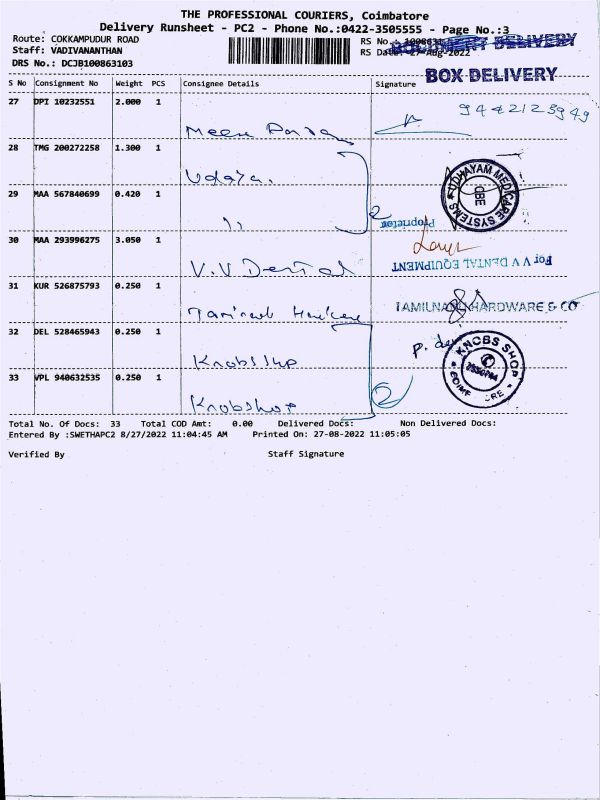 THE PROFESSIONAL COURIERS, Coimbatore
Delivery Runsheet - PC2 - Phone No.:0422-3505555 - Page No.:3
Route: COKKAMPUDUR ROAD
RS No.:
Staff: VADIVANANTHAN
RS Date: 27-Aug-2022
DRS No.: DCJB100863103
DELIVERY
BOX DELIVERY
S No Consignment No Weight PCS Consignee Details Signature
27 DPI 10232551 2.000 1
28 TMG 200272258 1.300 1 Udaya.
UDHAYAM MEDICARE SYSTEMS CBE
29 MAA 567840699 0.420 1 ,,
2
Proprietor
30 MAA 293996275 3.050 1 V.V Dental
For V V DENTAL EQUIPMENT
31 KUR 526875793 0.250 1
TAMILNADU HARDWARE & CO
32 DEL 528465943 0.250 1 Knobs shop
KNOBS SHOP
33 VPL 940632535 0.250 1 Knobshop
2
Total No. Of Docs: 33 Total COD Amt: 0.00 Delivered Docs: Non Delivered Docs:
Entered By :SWETHAPC2 8/27/2022 11:04:45 AM Printed On: 27-08-2022 11:05:05
Verified By Staff Signature